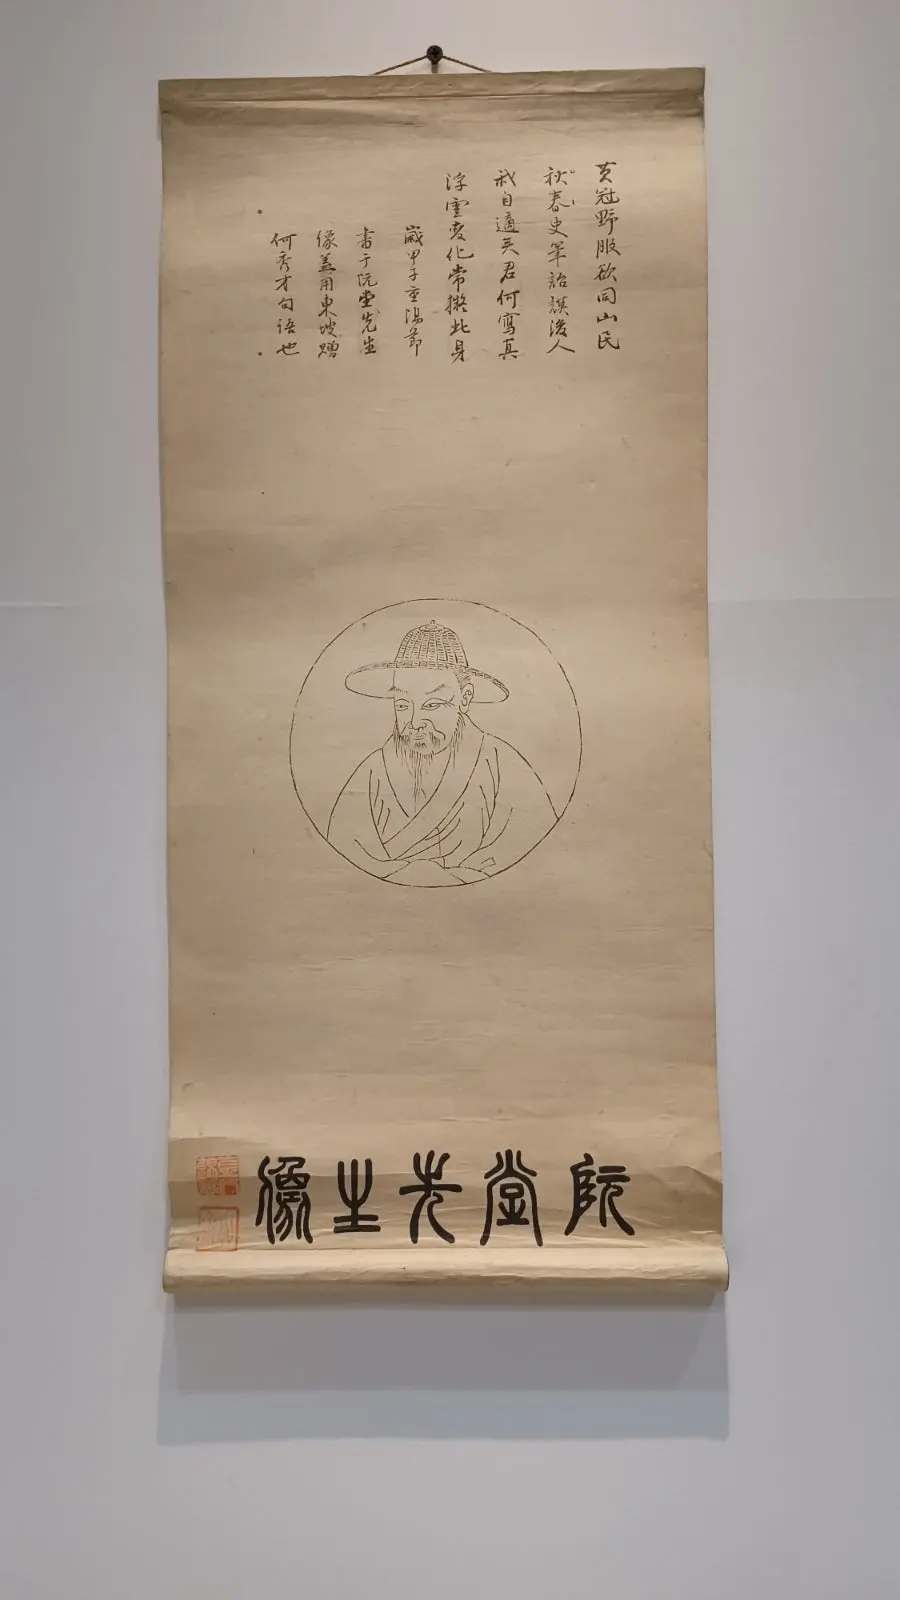 黄冠野服欲同山民
秋春史笔詒謨後人
我自適天君何寫真
浮雲變化常擬此身
歲甲子重陽節
書于阮堂先生
像蓋用東坡贈
何秀才句語也
阮堂先生像